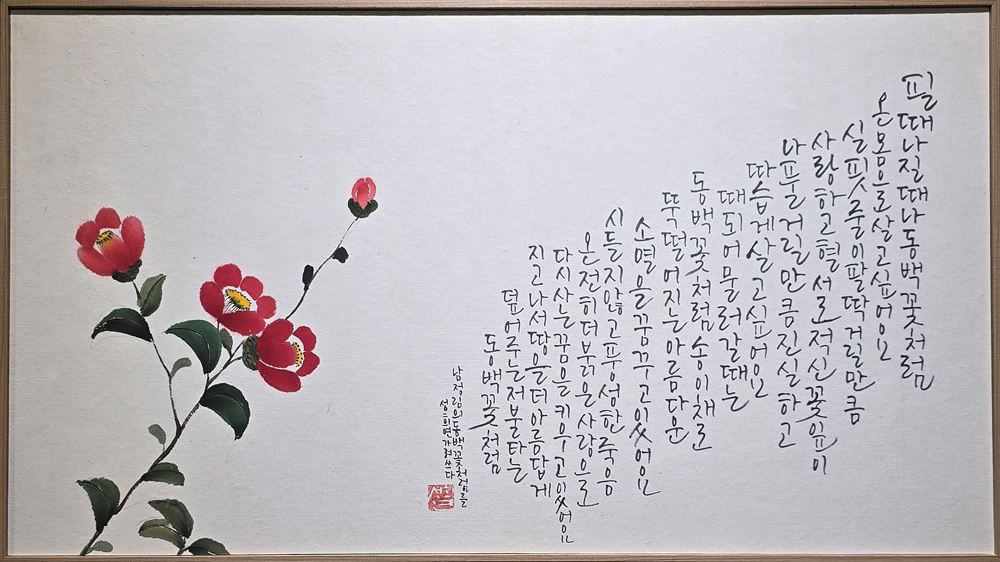 필때나질때나동백꽃처럼
온몸으로살고싶어요
실핏줄이팔딱거릴만큼
사랑하고혈서로적신꽃잎이
나풀거릴만큼진실하고
따습게살고싶어요
때되어물러갈때는
동백꽃처럼송이채로
뚝떨어지는아름다운
소멸을꿈꾸고있어요
시들지않고풍성한죽음
온전히더붉은사랑으로
다시사는꿈을키우고있어요
지고나서땅을더아름답게
덮어주는저불타는
동백꽃처럼
남정림의동백꽃처럼을
가져쓰다